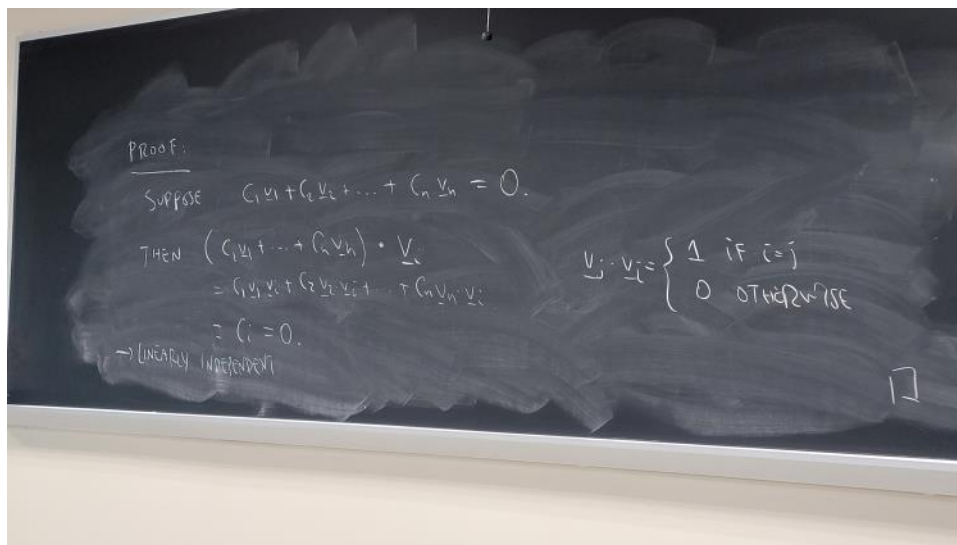 PROOF:
SUPPOSE C₁v₁ + C₂v₂ + ... + Cₙvₙ = 0.
THEN (C₁v₁ + ... + Cₙvₙ) · vᵢ
= C₁v₁·vᵢ + C₂v₂·vᵢ + ... + Cₙvₙ·vᵢ
= Cᵢ = 0.
→ LINEARLY INDEPENDENT
vⱼ · vᵢ = { 1 if i=j
0 OTHERWISE